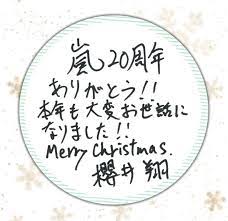 嵐20周年
ありがとう!!
本年も大変お世話に
なりました!!
Merry Christmas.
櫻井翔